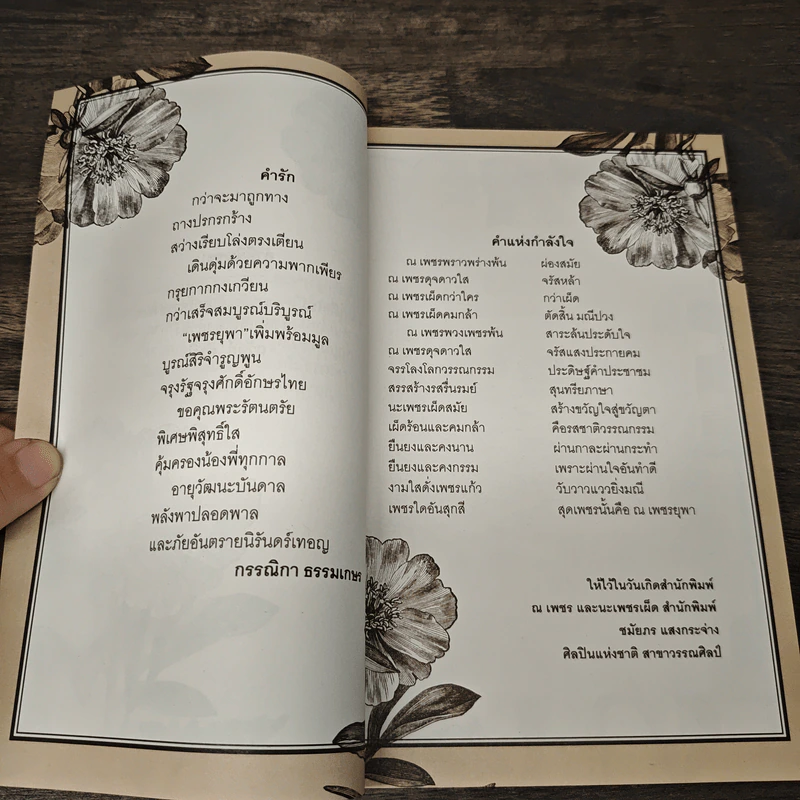 คำรัก
กว่าจะมาถูกทาง
ถางปรกรกร้าง
สว่างเรียบโล่งตรงเตียน
เดินดุ่มด้วยความพากเพียร
กรุยกากกงเกวียน
กว่าเสร็จสมบูรณ์บริบูรณ์
"เพชรยุพา"เพิ่มพร้อมมูล
บูรณ์สิริจำรูญพูน
จรุงรัฐจรุงศักดิ์อักษรไทย
ขอคุณพระรัตนตรัย
พิเศษพิสุทธิ์ใส
คุ้มครองน้องพี่ทุกกาล
อายุวัฒนะบันดาล
พลังพาปลอดพาล
และภัยอันตรายนิรันดร์เทอญ
กรรณิกา ธรรมเกษร
คำแห่งกำลังใจ
ณ เพชรพราวพร่างพ้น ผ่องสมัย
ณ เพชรดุจดาวใส จรัสหล้า
ณ เพชรเผ็ดกว่าใคร กว่าเผ็ด
ณ เพชรเผ็ดคมกล้า ตัดสิ้น มณีปวง
ณ เพชรพวงเพชรพ้น สาระล้นประดับใจ
ณ เพชรดุจดาวใส จรัสแสงประกายคม
จรรโลงโลกวรรณกรรม ประดิษฐ์คำประชาชม
สรรสร้างรสรื่นรมย์ สุนทรียภาษา
นะเพชรเผ็ดสมัย สร้างขวัญใจสู่ขวัญตา
เผ็ดร้อนและคมกล้า คือรสชาติวรรณกรรม
ยืนยงและคงนาน ผ่านกาละผ่านกระทำ
ยืนยงและคงกรรม เพราะผ่านใจอันทำดี
งามใสดั่งเพชรแก้ว วับวาวแววยิ่งมณี
เพชรใดอันสุกสี สุดเพชรนั้นคือ ณ เพชรยุพา
ให้ไว้ในวันเกิดสำนักพิมพ์
ณ เพชร และนะเพชรเผ็ด สำนักพิมพ์
ชมัยภร แสงกระจ่าง
ศิลปินแห่งชาติ สาขาวรรณศิลป์